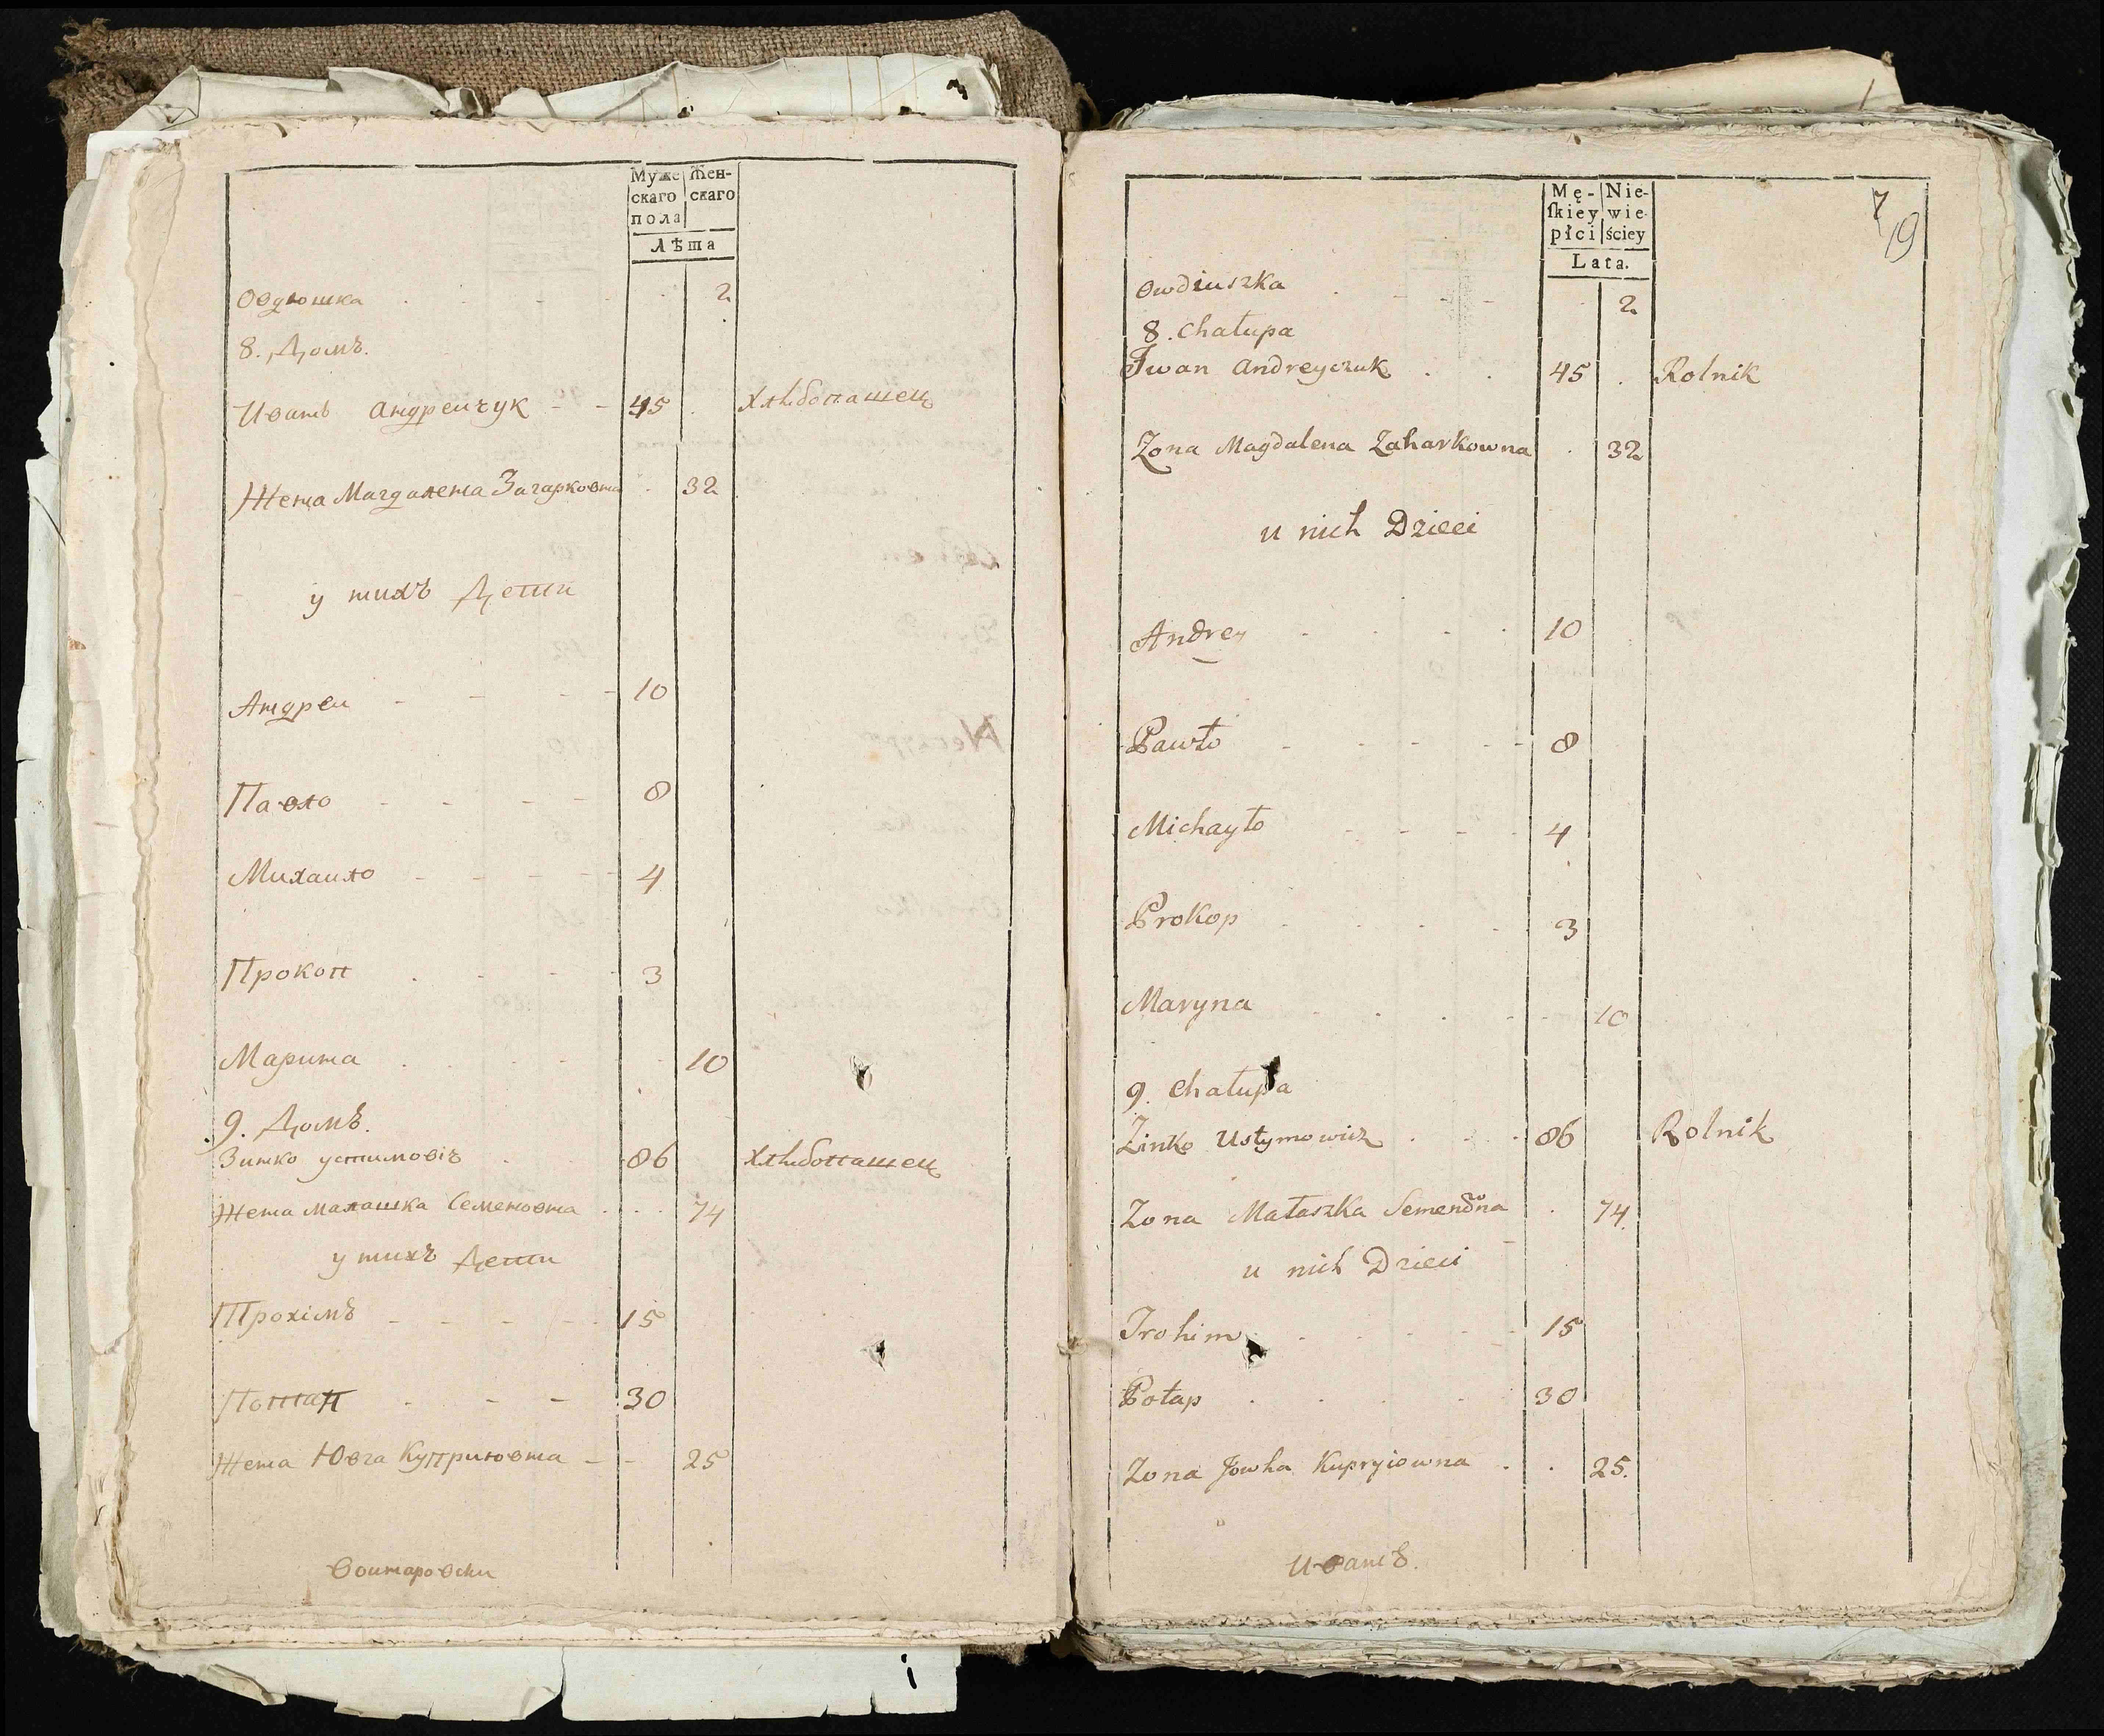 Муже Жен-
скаго скаго
пола
Лѣта
Овдюшка 2
8. Домъ.
Иванъ Андреичук 45 Хлѣбопашец
Жена Магдалена Захарковна 32
у нихъ Дети
Андреи 10
Павло 8
Михаило 4
Прокоп 3
Марина 10
9. Домъ.
Зинко устимовіч 86 Хлѣбопашец
Жена малашка Семеновна 74
у нихъ Дети
Трохімъ 15
Потап 30
Жена Ювга Куприювна 25
7
19
Mę- Nie-
ſkiey wie-
płci ściey
Lata.
Owdiuszka 2
8. Chałupa
Iwan Andreyczuk 45 Rolnik
Zona Magdalena Zaharkowna 32
u nich Dzieci
Andrey 10
Pawło 8
Michayło 4
Prokop 3
Maryna 10
9. Chałupa
Zinko Ustymowicz 86 Rolnik
Zona Małaszka Semenowna 74
u nich Dzieci
Trohim 15
Potap 30
Zona Jowha Kupryiowna 25.
Иванъ.